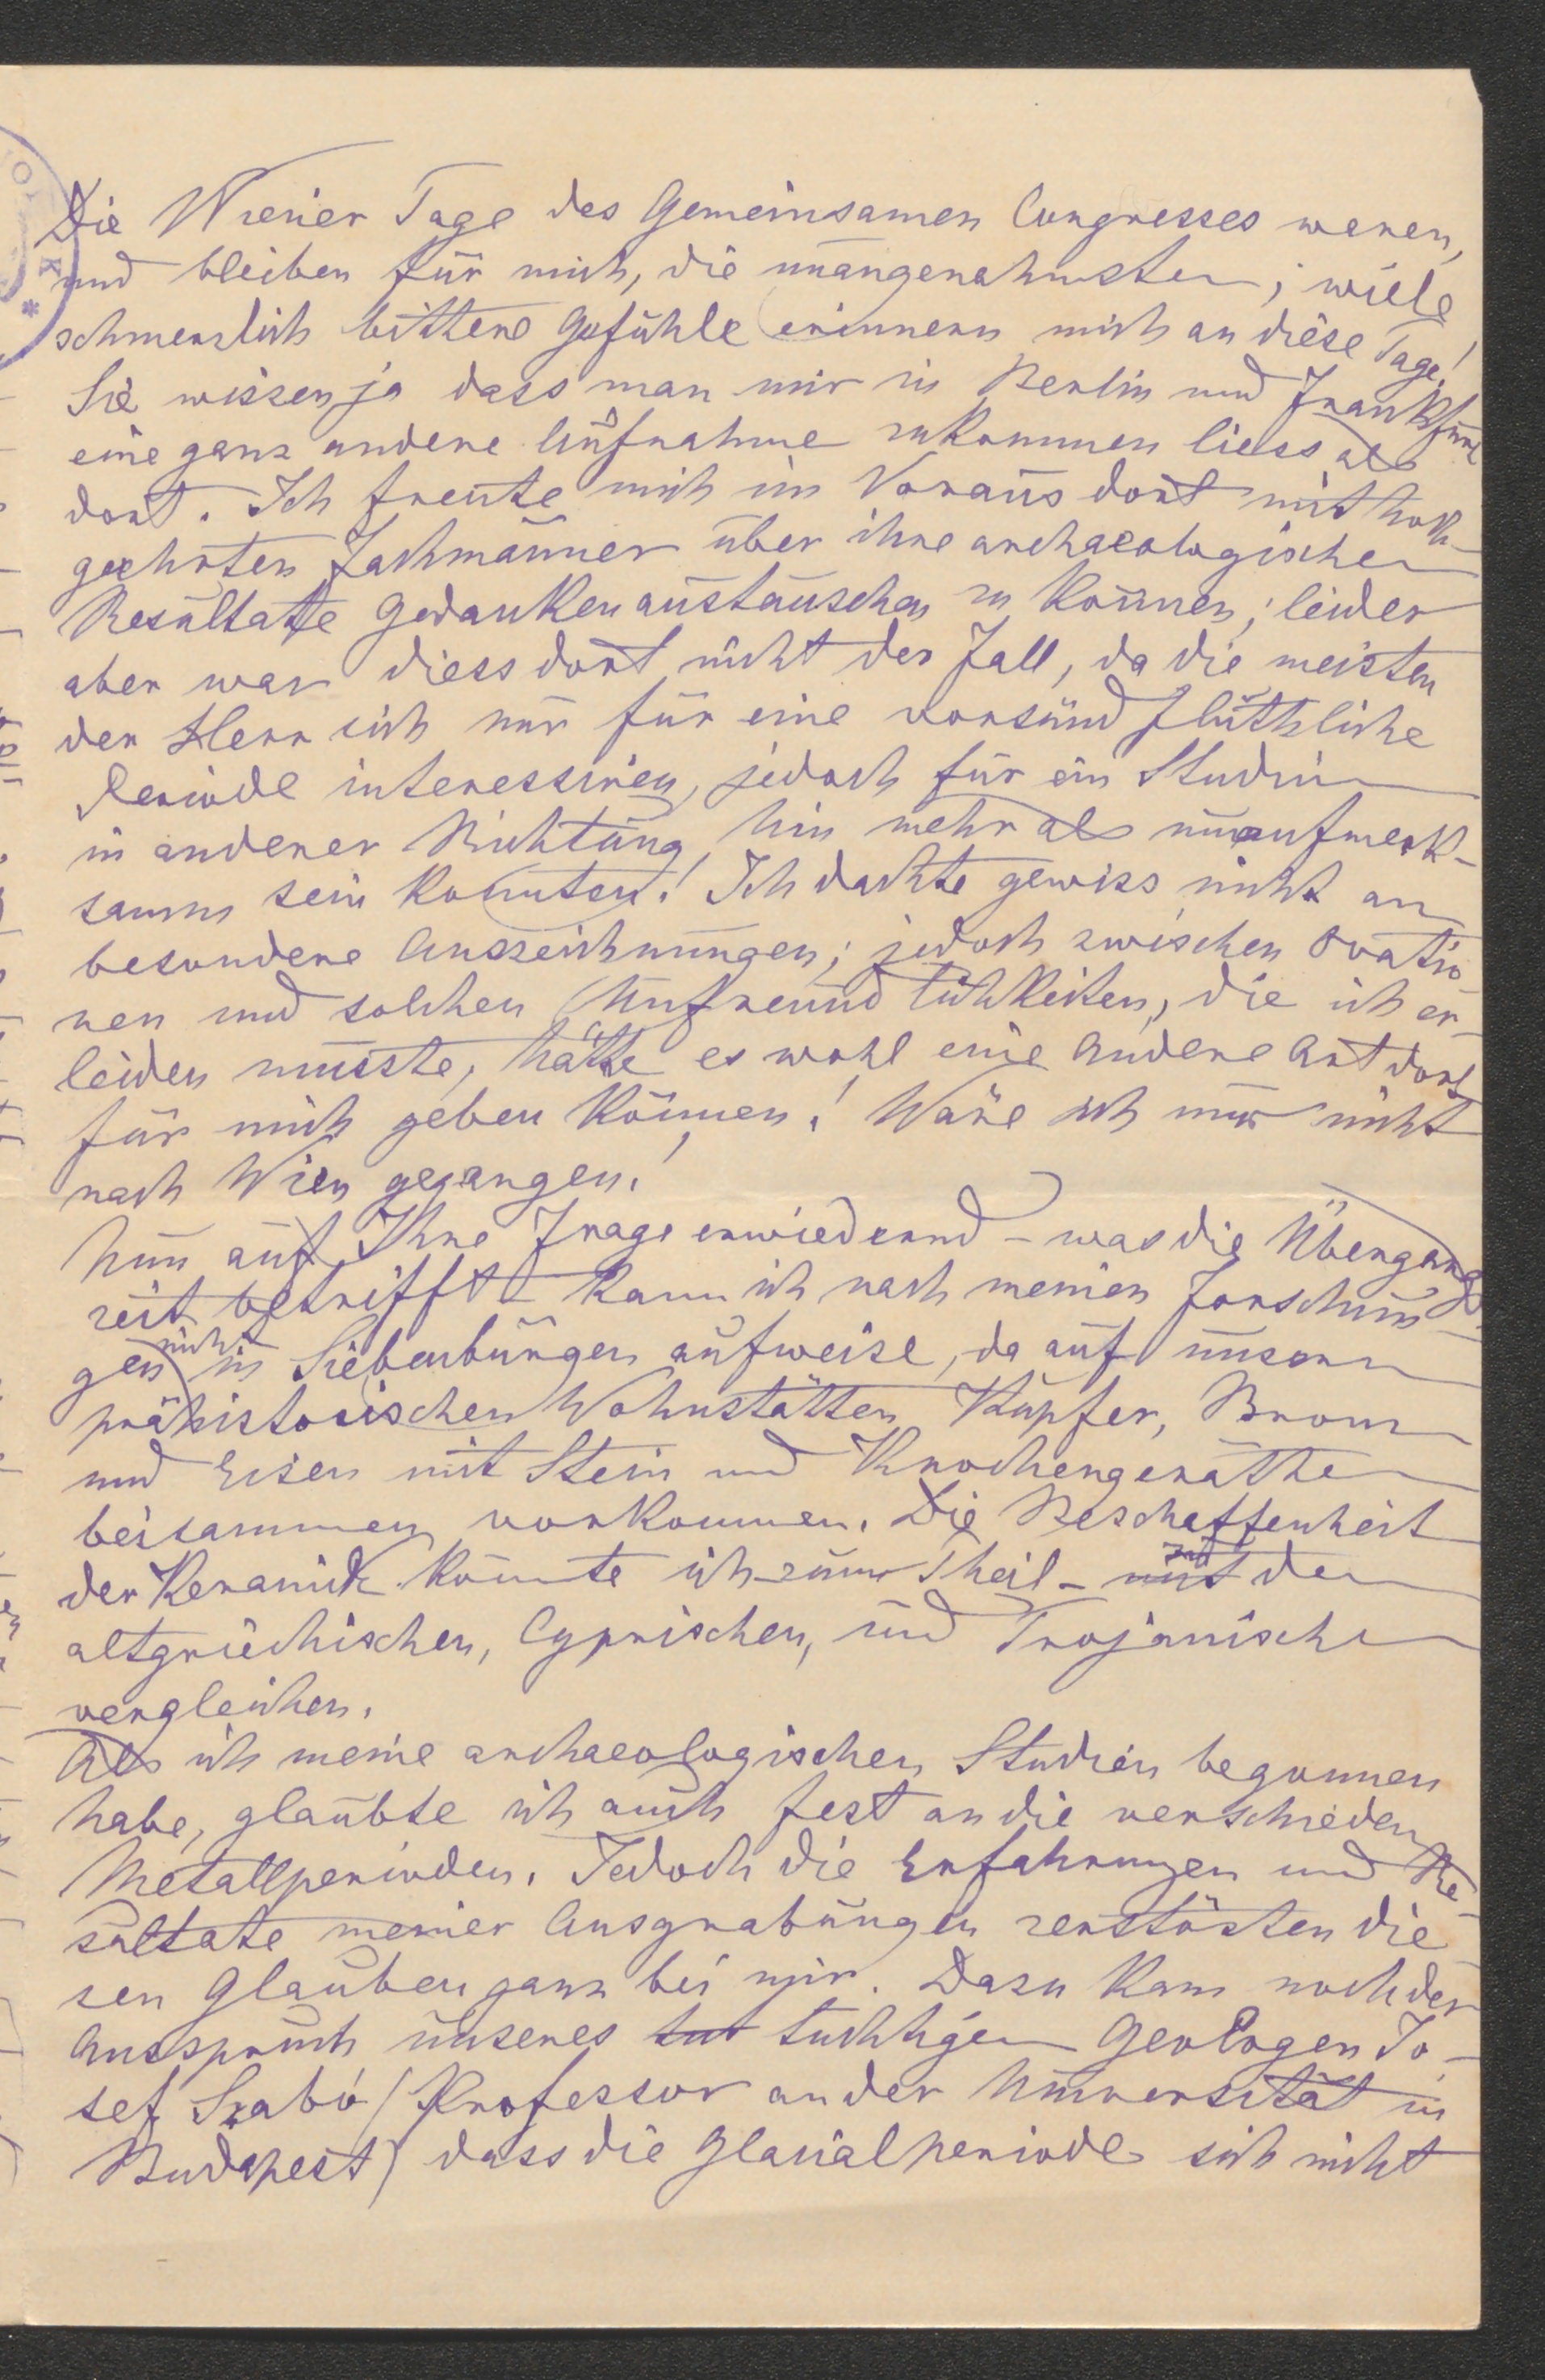 Die Wiener Tage des Gemeinsamen Congresses waren,
und bleiben für mich, die unangenahmsten; wiele
schmerzlich bittere Gefühle erinnern mich an diese Tage!
Sie wissen ja dass man mir in Berlin und Frankfurt
eine ganz andere Aufnahme zukommen liess, als
dort. Ich freute mich im Voraus dort mit hoch-
geehrten Fachmänner über ihre archaeologischen
Resultatte Gedanken austauschen zu können; leider
aber war diess dort nicht der Fall, da die meisten
der Herr sich nur für eine vorsündfluthliche
Periode interessiren, jedoch für ein Studium
in anderer Richtung hin mehr als unaufmerk-
samm sein konnten! Ich dachte gewiss nicht an
besondere Auszeichnungen; jedoch zwischen Ovatio-
nen und solchen Unfreundlichkeiten, die ich er-
leiden musste, hätte es wohl eine andere Art dort
für mich geben können! Wäre ich nur nicht
nach Wien gegangen!
Nun auf Ihre Frage erwiedernd - was die Übergangs-
zeit betrifft - kann ich nach meinen Forschun-
gen nicht in Siebenbürgen aufweise, da auf unsern
prähistorischen Wohnstätten Kupfer, Bronz
und Eisen mit Stein und Knochengeräthen
beisammen vorkommen. Die Beschaffenheit
der Keramik konnte ich - zum Theil - mit den
altgriechischen, Cyprischen, und Trojanischen
vergleichen.
Als ich meine archaeologischen Studien begonnen
habe, glaubte ich auch fest an die verschieden
Metallperioden. Jedoch die Erfahrungen und Re-
sultate meiner Ausgrabungen zerstörten die-
sen Glauben ganz bei mir. Dazu kam noch der
Ausspruch unseres tüchtigen Geologen Jo-
sef Szabó (Professor an der Universität in
Budapest) dass die Glacialperiode sich nicht